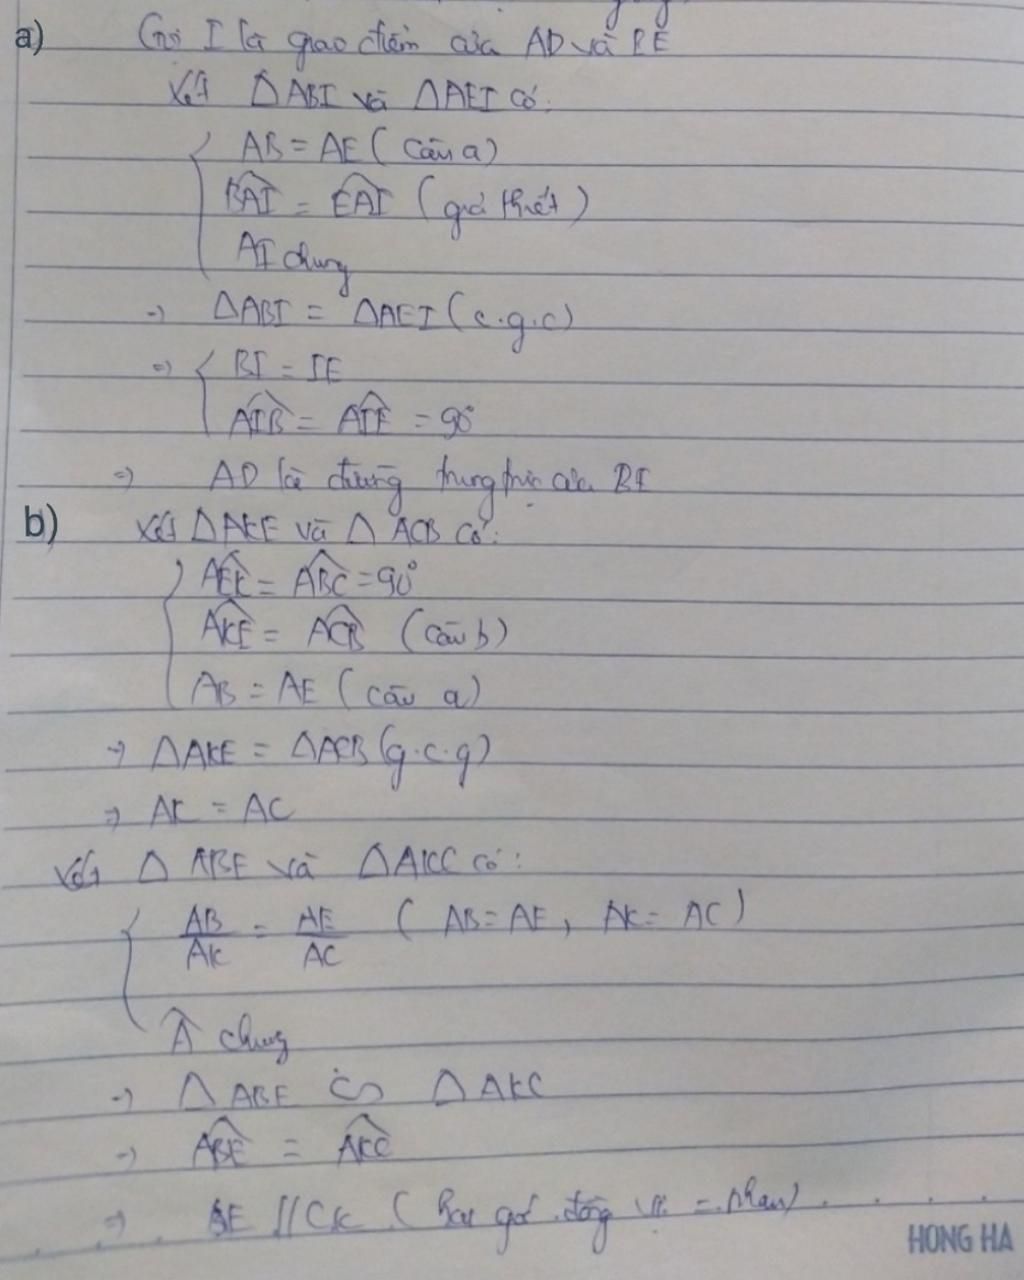 a) Gọi I là giao điểm của AD và BE
Xét ΔABI và ΔAEI có:
AB = AE (câu a)
BAI^ = EAI^ (giả thiết)
AI chung
=> ΔABI = ΔAEI (c.g.c)
=> BI = IE
AIB^ = AIE^ = 90°
=> AD là đường trung trực của BE
b) Xét ΔAKE và Δ ACB có:
AEK^ = ABC^ = 90°
AKE^ = ACB^ (câu b)
AB = AE (câu a)
=> ΔAKE = ΔACB (g.c.g)
=> AK = AC
Xét Δ ABE và ΔAKC có:
AB/AK = AE/AC (AB = AE, AK = AC)
A^ chung
=> Δ ABE ∽ Δ AKC
=> ABE^ = AKC^
=> BE // CK (hai góc đồng vị = nhau)
HONG HA